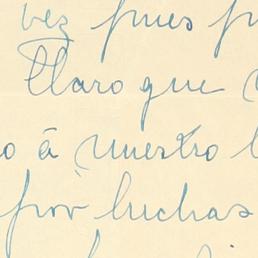 vez pues
Claro que
à nuestro
por luchas